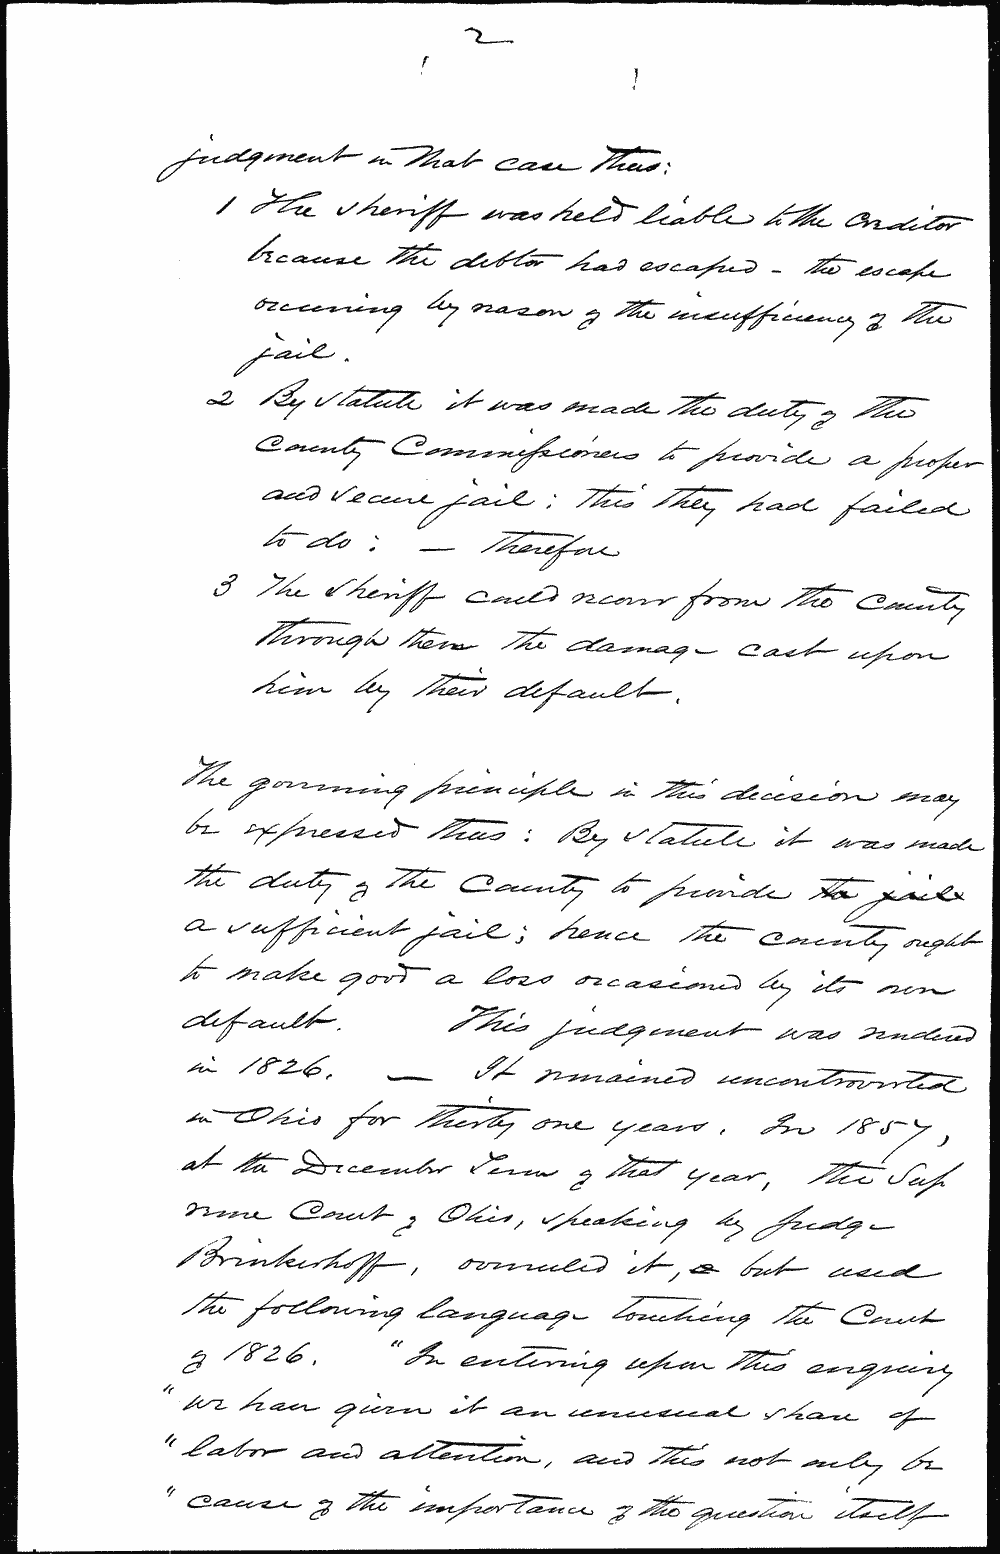 2
judgment in that case thus:
1 The sheriff was held liable to the creditor
because the debtor had escaped - the escape
occurring by reason of the insufficiency of the
jail.
2 By statute it was made the duty of the
County Commissioners to provide a proper
and secure jail: this they had failed
to do: — therefore
3 The sheriff could recover from the county
through them the damage cast upon
him by their default.
The governing principle in this decision may
be expressed thus: By statute it was made
the duty of the County to provide the jail
a sufficient jail; hence the county ought
to make good a loss occasioned by its own
default. This judgment was rendered
in 1826. — It remained uncontroverted
in Ohio for thirty one years. In 1857,
at the December Term of that year, the Sup
reme Court of Ohio, speaking by Judge
Brinkerhoff, overruled it, but used
the following language touching the Court
of 1826. "In entering upon this enquiry
"we have given it an unusual share of
"labor and attention, and this not only be
"cause of the importance of the question itself